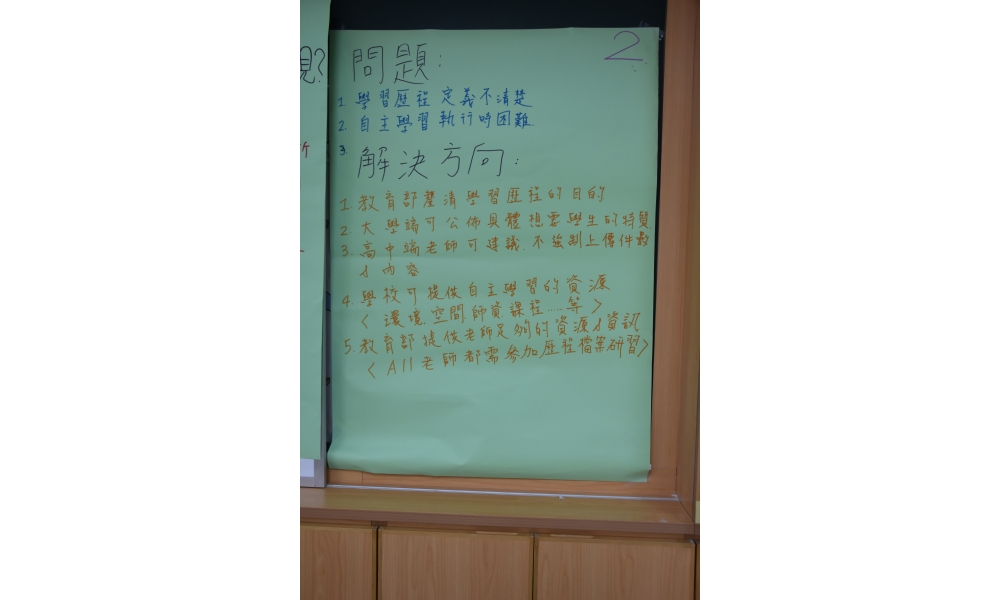 見?
2
問題:
1. 學習歷程定義不清楚
2. 自主學習執行時困難
3
解決方向:
1. 教育部釐清學習歷程的目的
2. 大學端可公佈具體想要學生的特質
3. 高中端老師可建議.不強制上傳件數
&內容
4. 學校可提供自主學習的資源
<環境.空間.師資.課程.....等>
5. 教育部提供老師足夠的資源&資訊
<All老師都需參加歷程檔案研習>